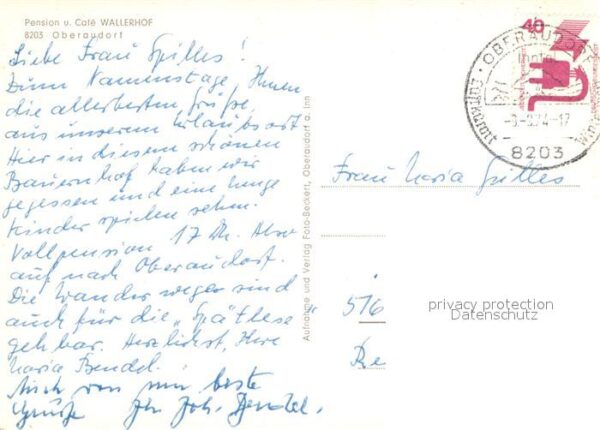 Pension u. Café WALLERHOF
8203 Oberaudorf
Liebe Frau Spilles!
Zum Namenstage, Ihnen
die allerbesten Grüße,
aus unserem Urlaubsort
Hier in diesem schönen
Bauernhof haben wir
gegessen und eine Menge
Kinder spielen sehn.
Vollpension 17 DM. Also
auf nach Oberaudorf.
Die Wanderwege sind
auch für die „Spätlese"
gehbar. Herzlichst, Ihre
Maria Bendel.
Auch von mir beste
Grüße Ihr Joh. Bendel.
Aufnahme und Verlag Foto-Beckert, Oberaudorf a. Inn
40
OBERAUDORF
Luftkurort
8203
Frau Maria Spilles
516
privacy protection
Datenschutz